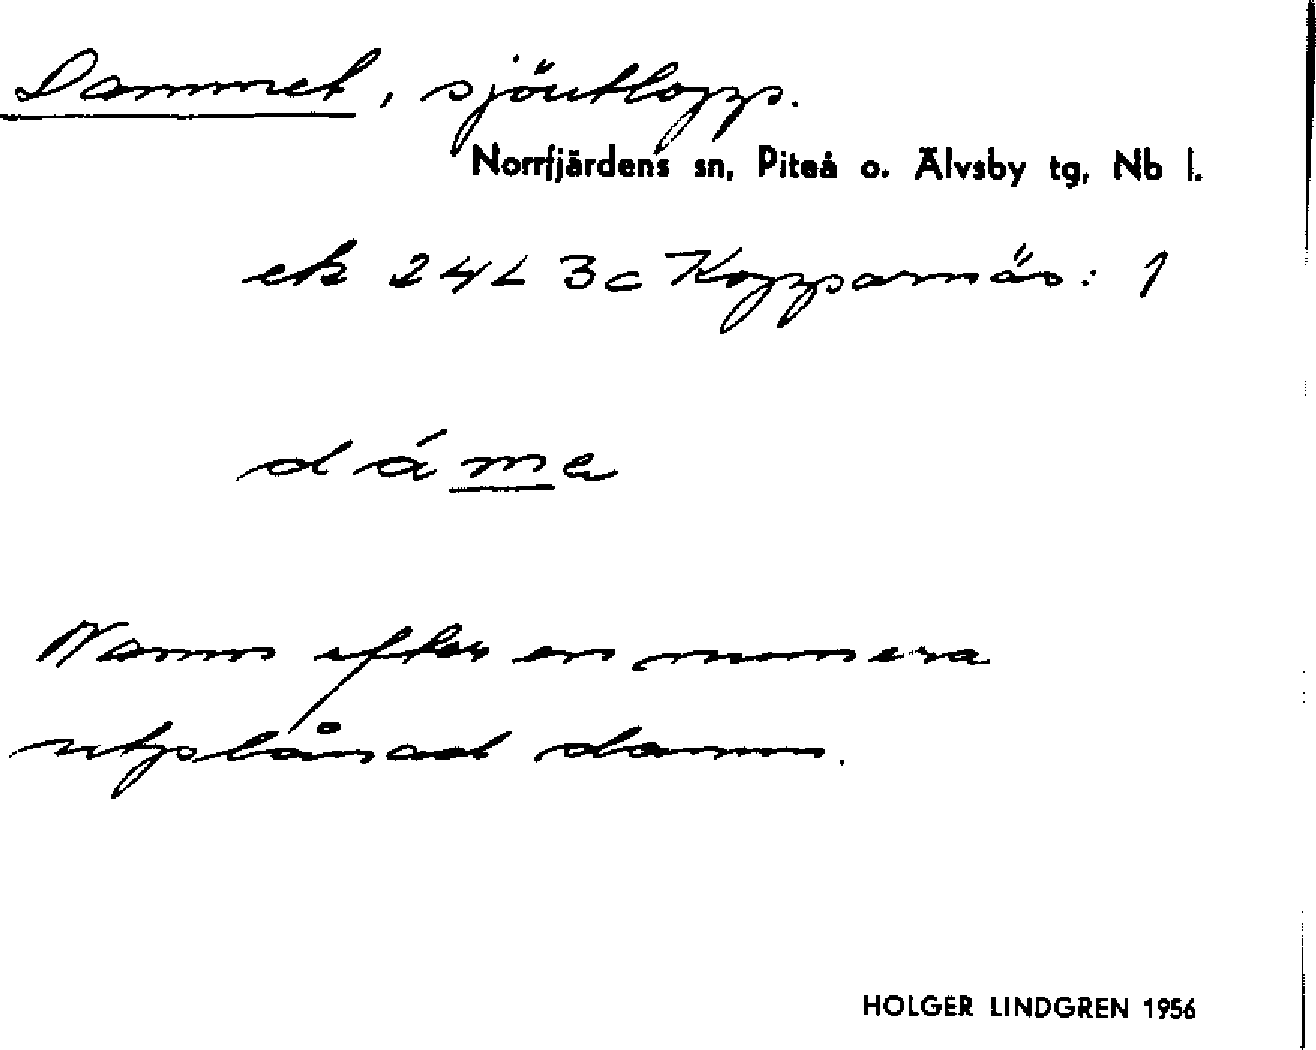 Dammet, sjöutlopp.
Norrfjärdens sn, Piteå o. Älvsby tg, Nb l.
ek 24L 3c Kopparnäs: 1
dáma
Namn efter en numera
utplånad damm.
HOLGER LINDGREN 1956